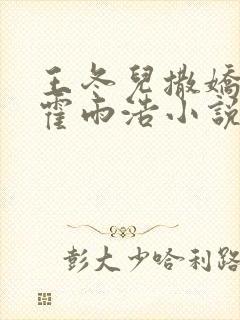 王冬兒撒嬌
霍雨浩小說
彭大少哈利路